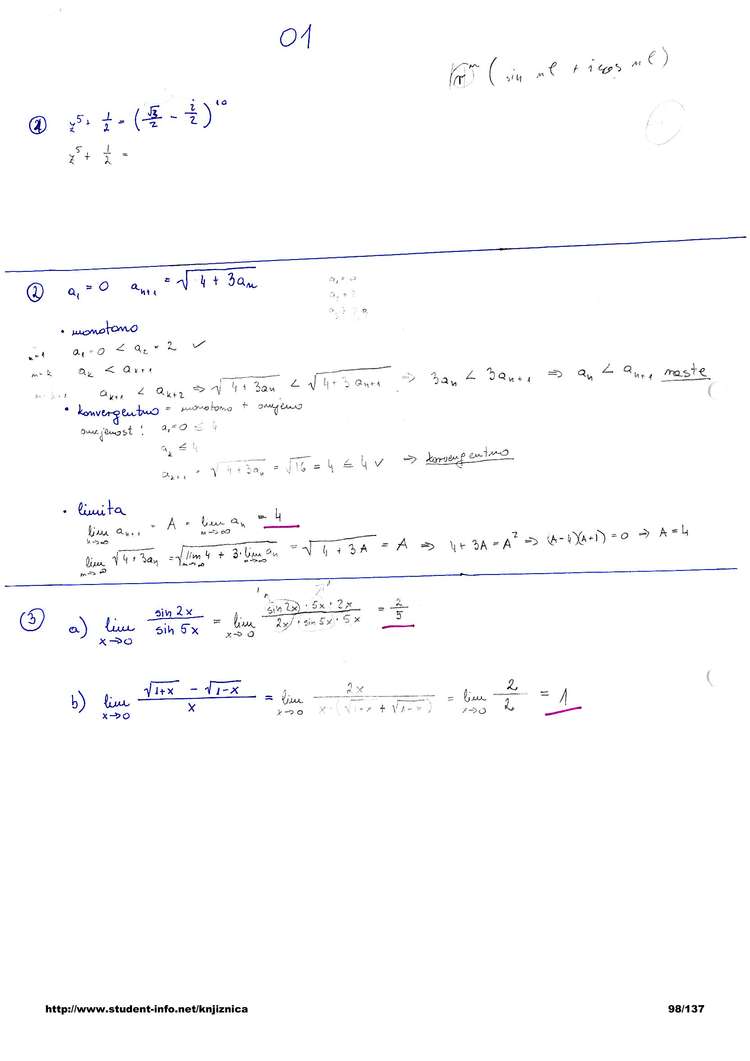 01
r^n ( sin nφ + i cos nφ )
① z^5 + 1/2 = (√3/2 - i/2)^10
z^5 + 1/2 =
② a_1 = 0 a_{n+1} = √(4 + 3a_n)
• monotono
n=1 a_1 = 0 < a_2 = 2 ✓
n=k a_k < a_{k+1}
a_{k+1} < a_{k+2} ⇒ √(4 + 3a_n) < √(4 + 3a_{n+1}) ⇒ 3a_n < 3a_{n+1} ⇒ a_n < a_{n+1} raste
• konvergentno = monotono + omejeno
omejenost: a_1 = 0 ≤ 4
a_k ≤ 4
a_{k+1} = √(4 + 3a_k) = √16 = 4 ≤ 4 ✓ ⇒ konvergentno
• limita
lim_{n→∞} a_{n+1} = A = lim_{n→∞} a_n = 4
lim_{n→∞} √(4 + 3a_n) = √(lim_{n→∞} 4 + 3·lim_{n→∞} a_n) = √(4 + 3A) = A ⇒ 4 + 3A = A^2 ⇒ (A-4)(A+1) = 0 ⇒ A = 4
③ a) lim_{x→0} sin 2x / sin 5x = lim_{x→0} (sin 2x · 5x · 2x) / (2x · sin 5x · 5x) = 2/5
b) lim_{x→0} (√(1+x) - √(1-x)) / x = lim_{x→0} 2x / (x · (√(1+x) + √(1-x))) = lim_{x→0} 2/2 = 1
http://www.student-info.net/knjiznica 98/137